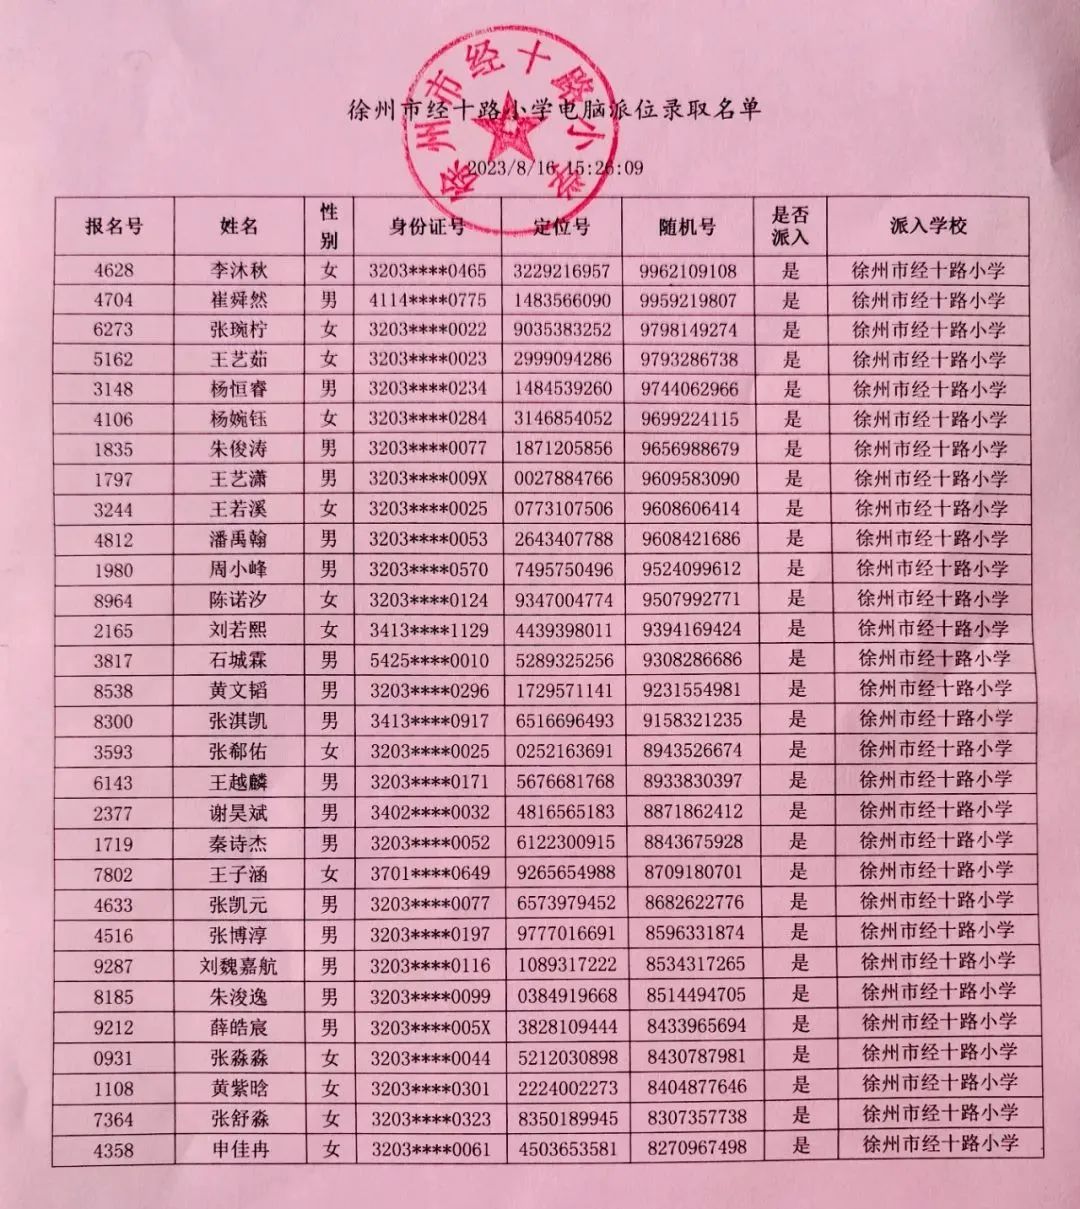 徐州市经十路小学
徐州市经十路小学电脑派位录取名单
2023/8/16 15:26:09
报名号 姓名 性别 身份证号 定位号 随机号 是否派入 派入学校
4628 李沐秋 女 3203****0465 3229216957 9962109108 是 徐州市经十路小学
4704 崔舜然 男 4114****0775 1483566090 9959219807 是 徐州市经十路小学
6273 张琬柠 女 3203****0022 9035383252 9798149274 是 徐州市经十路小学
5162 王艺茹 女 3203****0023 2999094286 9793286738 是 徐州市经十路小学
3148 杨恒睿 男 3203****0234 1484539260 9744062966 是 徐州市经十路小学
4106 杨婉钰 女 3203****0284 3146854052 9699224115 是 徐州市经十路小学
1835 朱俊涛 男 3203****0077 1871205856 9656988679 是 徐州市经十路小学
1797 王艺潇 男 3203****009X 0027884766 9609583090 是 徐州市经十路小学
3244 王若溪 女 3203****0025 0773107506 9608606414 是 徐州市经十路小学
4812 潘禹翰 男 3203****0053 2643407788 9608421686 是 徐州市经十路小学
1980 周小峰 男 3203****0570 7495750496 9524099612 是 徐州市经十路小学
8964 陈诺汐 女 3203****0124 9347004774 9507992771 是 徐州市经十路小学
2165 刘若熙 女 3413****1129 4439398011 9394169424 是 徐州市经十路小学
3817 石城霖 男 5425****0010 5289325256 9308286686 是 徐州市经十路小学
8538 黄文韬 男 3203****0296 1729571141 9231554981 是 徐州市经十路小学
8300 张淇凯 男 3413****0917 6516696493 9158321235 是 徐州市经十路小学
3593 张郗佑 女 3203****0025 0252163691 8943526674 是 徐州市经十路小学
6143 王越麟 男 3203****0171 5676681768 8933830397 是 徐州市经十路小学
2377 谢昊斌 男 3402****0032 4816565183 8871862412 是 徐州市经十路小学
1719 秦诗杰 男 3203****0052 6122300915 8843675928 是 徐州市经十路小学
7802 王子涵 女 3701****0649 9265654988 8709180701 是 徐州市经十路小学
4633 张凯元 男 3203****0077 6573979452 8682622776 是 徐州市经十路小学
4516 张博淳 男 3203****0197 9777016691 8596331874 是 徐州市经十路小学
9287 刘魏嘉航 男 3203****0116 1089317222 8534317265 是 徐州市经十路小学
8185 朱浚逸 男 3203****0099 0384919668 8514494705 是 徐州市经十路小学
9212 薛皓宸 男 3203****005X 3828109444 8433965694 是 徐州市经十路小学
0931 张淼淼 女 3203****0044 5212030898 8430787981 是 徐州市经十路小学
1108 黄紫晗 女 3203****0301 2224002273 8404877646 是 徐州市经十路小学
7364 张舒淼 女 3203****0323 8350189945 8307357738 是 徐州市经十路小学
4358 申佳冉 女 3203****0061 4503653581 8270967498 是 徐州市经十路小学